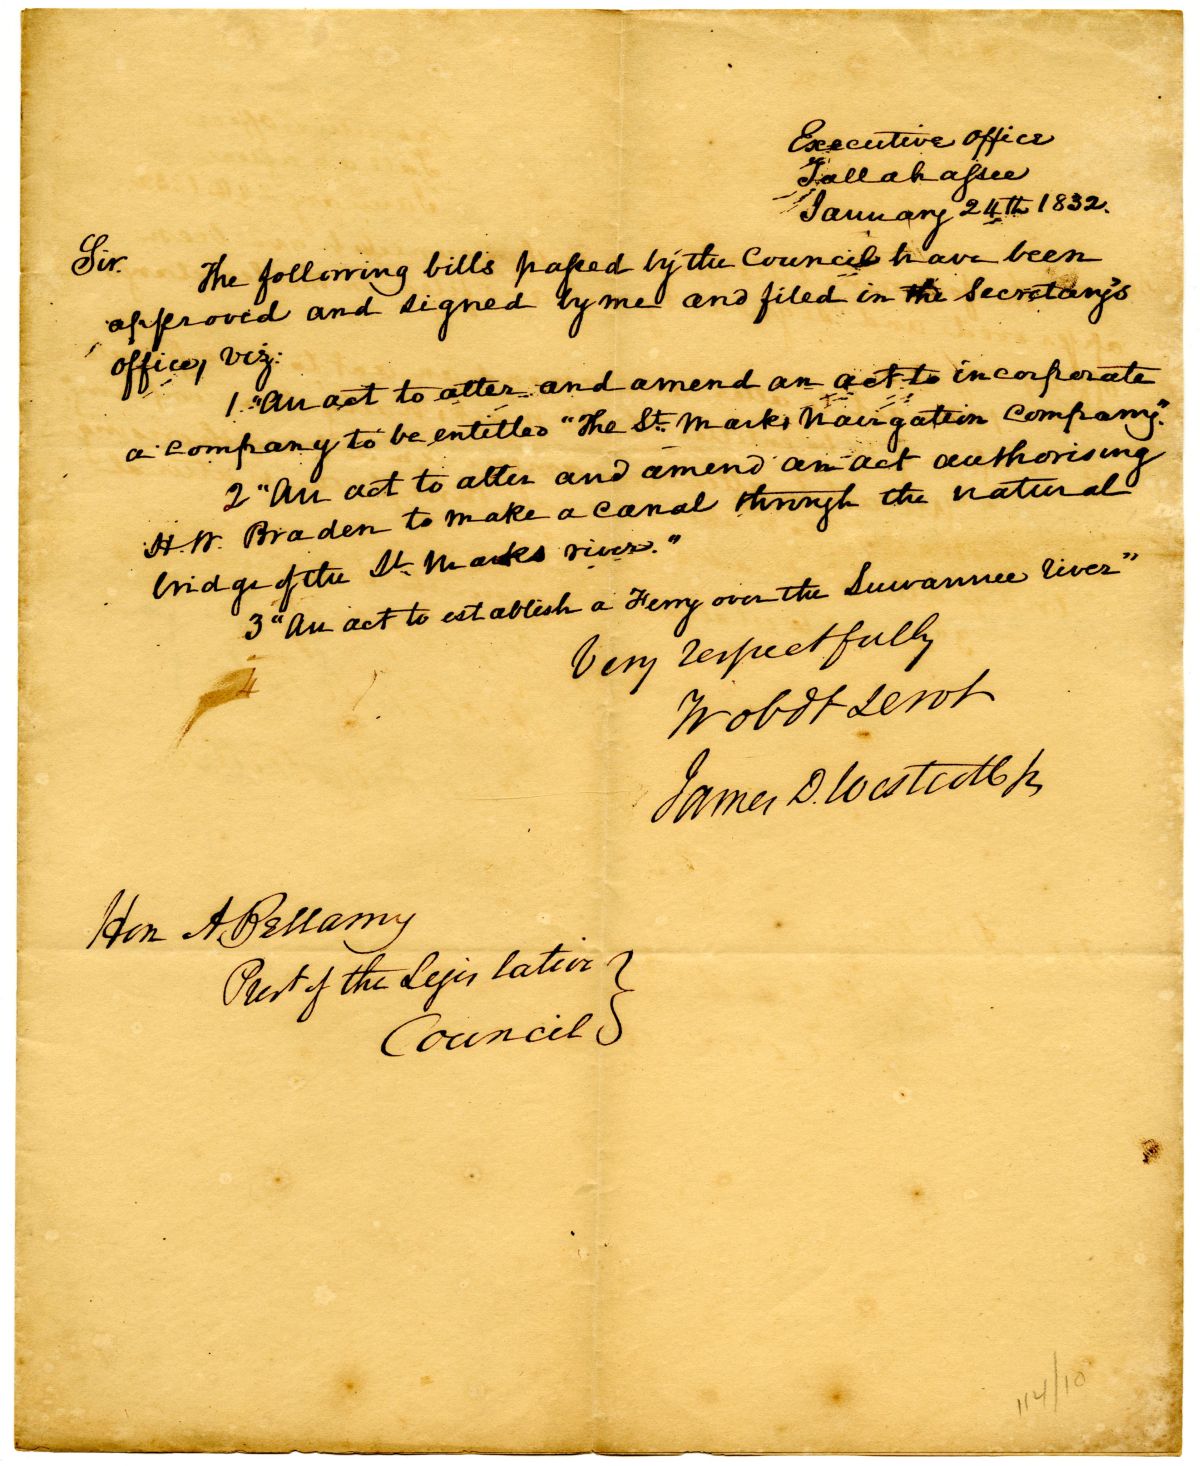 Executive Office
Tallahassee
January 24th 1832.
Sir.
The following bills passed by the Council have been
approved and signed by me and filed in the Secretary's
office, viz:
1. "An act to alter and amend an act to incorporate
a company to be entitled "The St. Marks Navigation Company."
2 "An act to alter and amend an act authorising
H. W. Braden to make a canal through the natural
bridge of the St. Marks river."
3 "An act to establish a Ferry over the Suwannee river"
Very respectfully
Yr obdt Servt
James D. Westcott Jr
Hon A Bellamy
Prest of the Legislative
Council
114/10